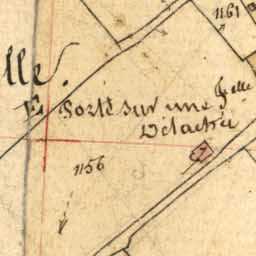 1161
lle.
E Porté sur une flle
Détachée
1156